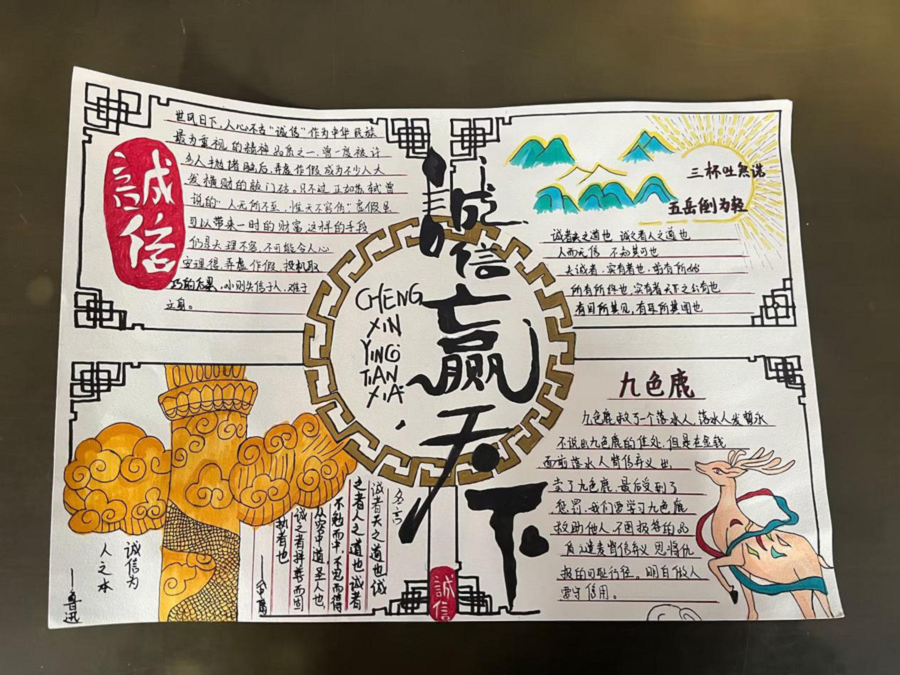 誠信
世风日下,人心不古"诚信"作为中华民族
最为重视的精神品质之一,曾一度被许
多人抛诸脑后,弄虚作假成为不少人大
发横财的敲门砖。只不过正如苏轼曾
说的"人无所不至,惟天不容伪"虚假是
可以带来一时的财富,这样的手段
仍是天理不容,不可能令人心
安理得,弄虚作假、投机取
巧的后果,小则失信于人,难于
立身。
三杯吐然诺
五岳倒为轻
诚者天之道也 诚之者人之道也
人而无信 不知其可也
夫诚者,实有者也,前有所始
所有所终也,实有者天下之公有也
有目所共见,有耳所共闻也
誠信赢天下
CHENG
XIN
YING
TIAN
XIA
诚信为
人之本
——鲁迅
名言
诚者天之道也诚
之者人之道也诚者
不勉而中,不思而得
从容中道圣人也,
诚之者择善而固
执者也
誠信
九色鹿
九色鹿救了一个落水人,落水人发誓永
不说出九色鹿的住处,但是在金钱
面前落水人背信弃义出
卖了九色鹿,最后受到了
惩罚,我们要学习九色鹿
救助他人,不图报答的品
质,谴责背信弃义 见将仇
报的可耻行径。明白做人
要守信用。